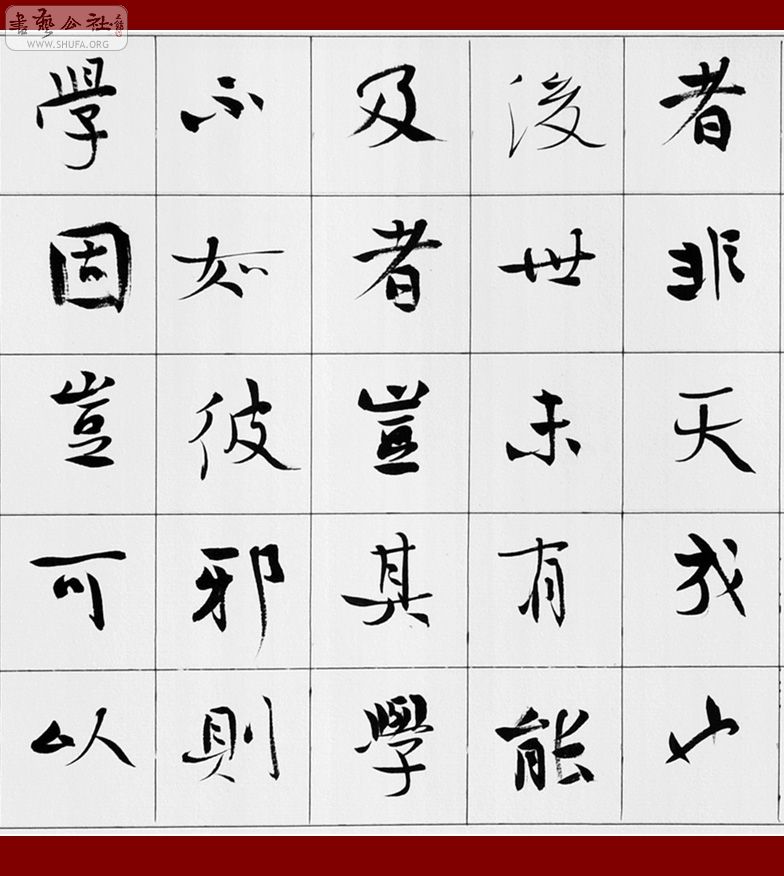 者非天成也
後世未有能
及者豈其學
不如彼邪則
學固豈可以
書藝公社
WWW.SHUFA.ORG